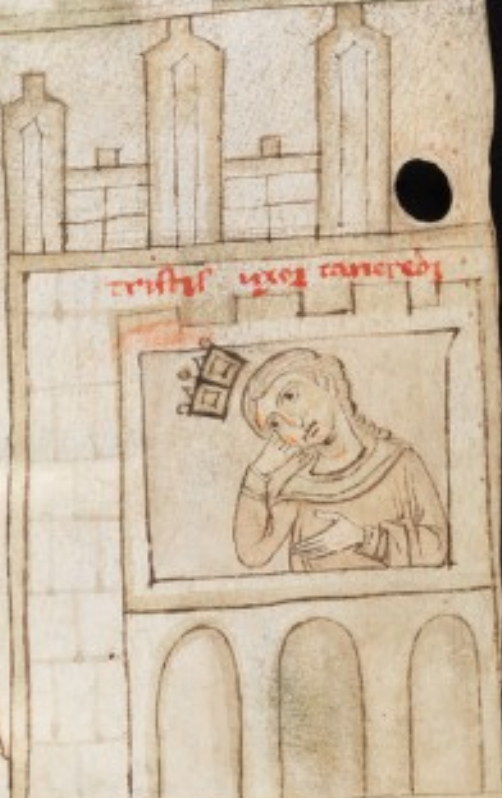 tristis uxor tancredi